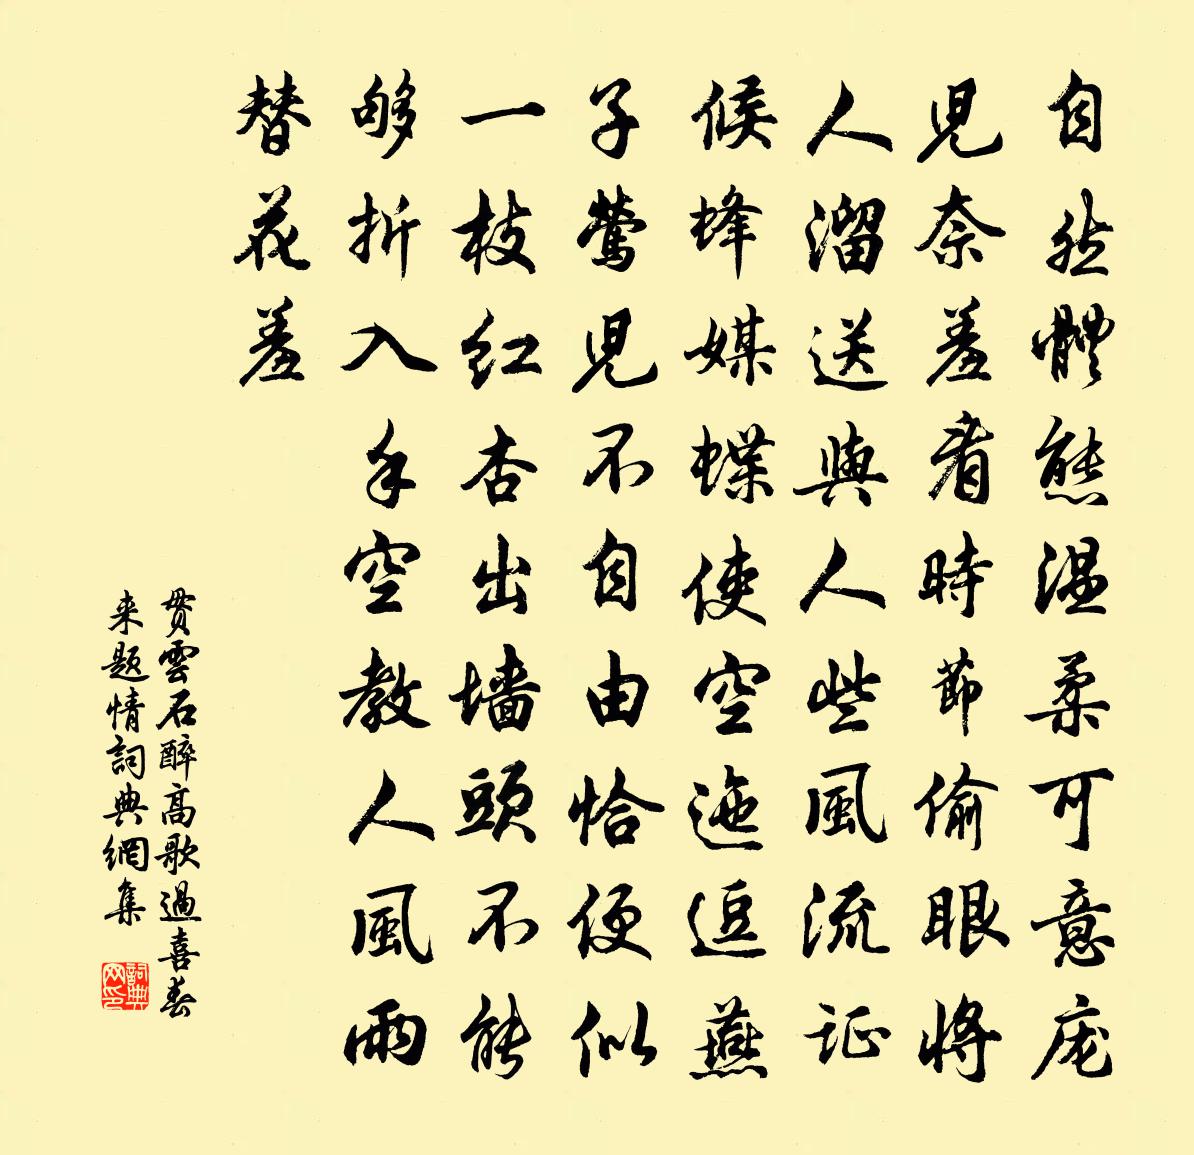 自然體態溫柔可意庞
児奈羞看時節偷眼將
人溜送與人些風流证
候蜂媒蝶使空迤逗燕
子鶯児不自由恰便似
一枝红杏出墙頭不能
够折入手空教人風雨
替花羞
贯雲石醉高歌過喜春
来题情詞典網集
詞典网印